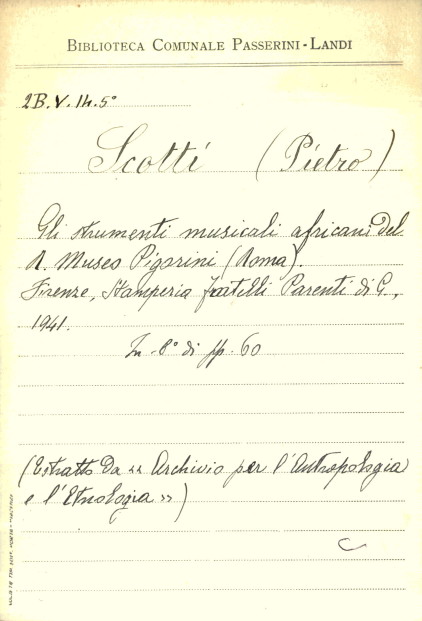 BIBLIOTECA COMUNALE PASSERINI-LANDI
2B.V.14.5°
Scotti (Pietro)
Gli strumenti musicali africani del
R. Museo Pigorini (Roma).
Firenze, Stamperia fratelli Parenti di G.,
1941.
In-8° di pp. 60
(Estratto da «Archivio per l'Antropologia
e l'Etnologia»)
C